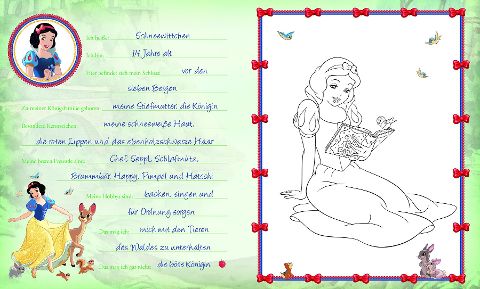 Ich heiße: Schneewittchen
Ich bin: 14 Jahre alt
Hier befindet sich mein Schloss: vor den
sieben Bergen
Zu meiner Königsfamilie gehören: meine Stiefmutter, die Königin
Besondere Kennzeichen: meine schneeweiße Haut,
die roten Lippen und das ebenholzschwarze Haar
Meine besten Freunde sind: Chef, Seppl, Schlafmütz,
Brummbär, Happy, Pimpel und Hatschi
Meine Hobbys sind: backen, singen und
für Ordnung sorgen
Das mag ich: mich mit den Tieren
des Waldes zu unterhalten
Das mag ich gar nicht: die böse Königin